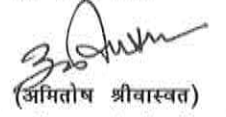 (अमितोष श्रीवास्वत)